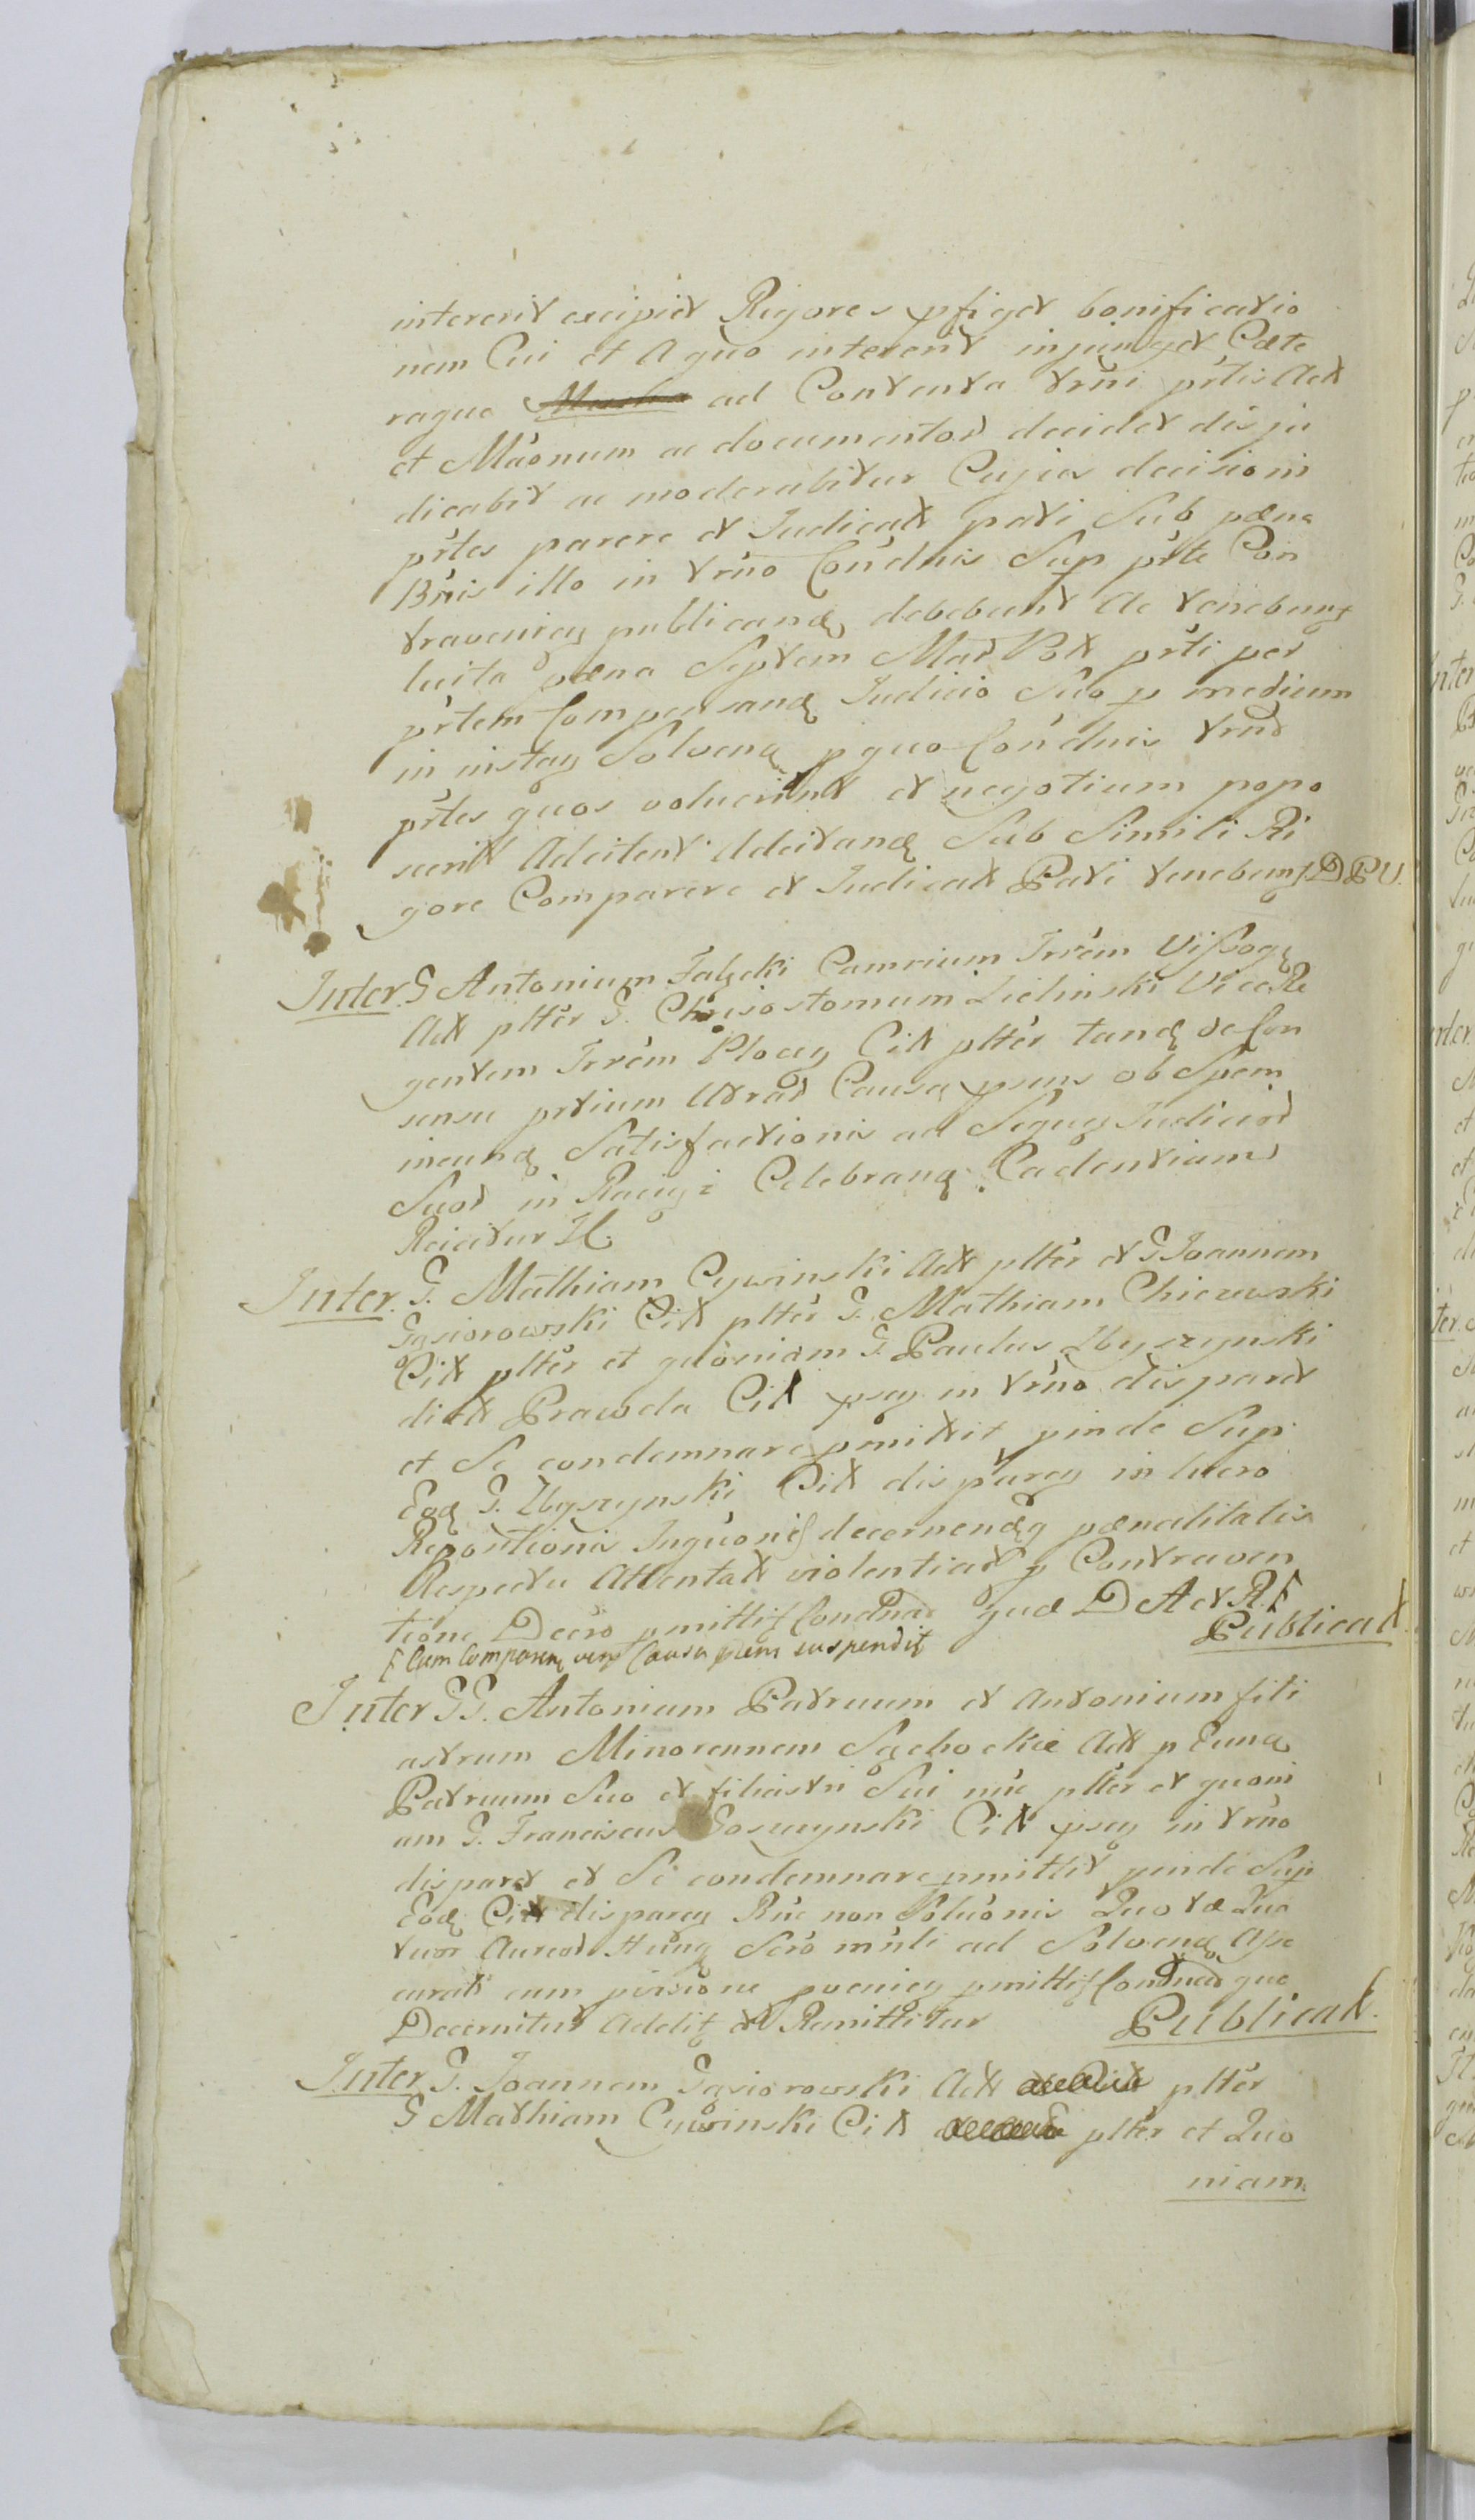 intererit excipiet Rigores pfiget bonificatio
nem Cui et A quo intererit injunget Cæte
raque ad Contenta trñi prtis Act
et Mãonum ac documentor decidet disju
dicabit ac moderabitur Cujus decisioni
prtes parere et Judicat pati Sub pæna
Bñis illo in trño Cõndnis Sup prte Con
traveniens publicand debebunt Ac tenebunt
luita pæna Septem Mar Pol prti per
prtem Compensand Judicio Suo p medium
in instan Solvend p quo Condnis trño
prtes quos voluerint et negotium popo
scerit Adcitent Adcitand Sub Simili Ri
gore Comparere et Judicat Pati tenebunt D P U.
Inter G Antonium Falęcki Camrium Trrem Vissog
Act plter G. Chrisostomum Zielinski ViceRe
gentem Trrem Plocen Cit plter tand de Con
sensu prtium Utrar Causa psens ob Spem
ineund Satisfactionis ad Sequen Judicior
Suor in Raciąż Celebrand Cadentiam
Reicitur H.
Inter G. Mathiam Cywinski Act plter et G Joannem
Gąsiorowski Cit plter G. Mathiam Chiczewski
Cit plter et quoniam G. Paulus Zbyszynski
dict Prawda Cit psen in trño disparet
et Se condemnare pmittit pinde Sup
Eod G. Zbyszynski Cit disparen in lucro
Repositionis Inquonis decernendæq pænalitatis
Respectu Attentat violentiar p Contraven
tione Decro pmittit Condnao quæ D A et R. F
Publicat.
F Cum Comparen vero Causa psens suspendit
Inter GG. Antonium Patruum et Antonium fili
astrum Minorennem Sęchockie Act p Eund
Patruum Suo et filiastri Sui nñe plter et quoni
am G. Franciscus Goszczynski Cit psen in trño
disparet et Se condemnare pmittit pinde Sup
Eod Cit disparen Rñe non Solutionis Quotæ Qua
tuor Aureor Hung Scro mñli ad Solvend Asse
curat cum pœnien pmittit Condnao quæ
Decernitur Addit et Remittitur Publicat.
Inter G. Joannem Gąsiorowski Act plter
G Mathiam Cywinski Cit plter et Quo
niam